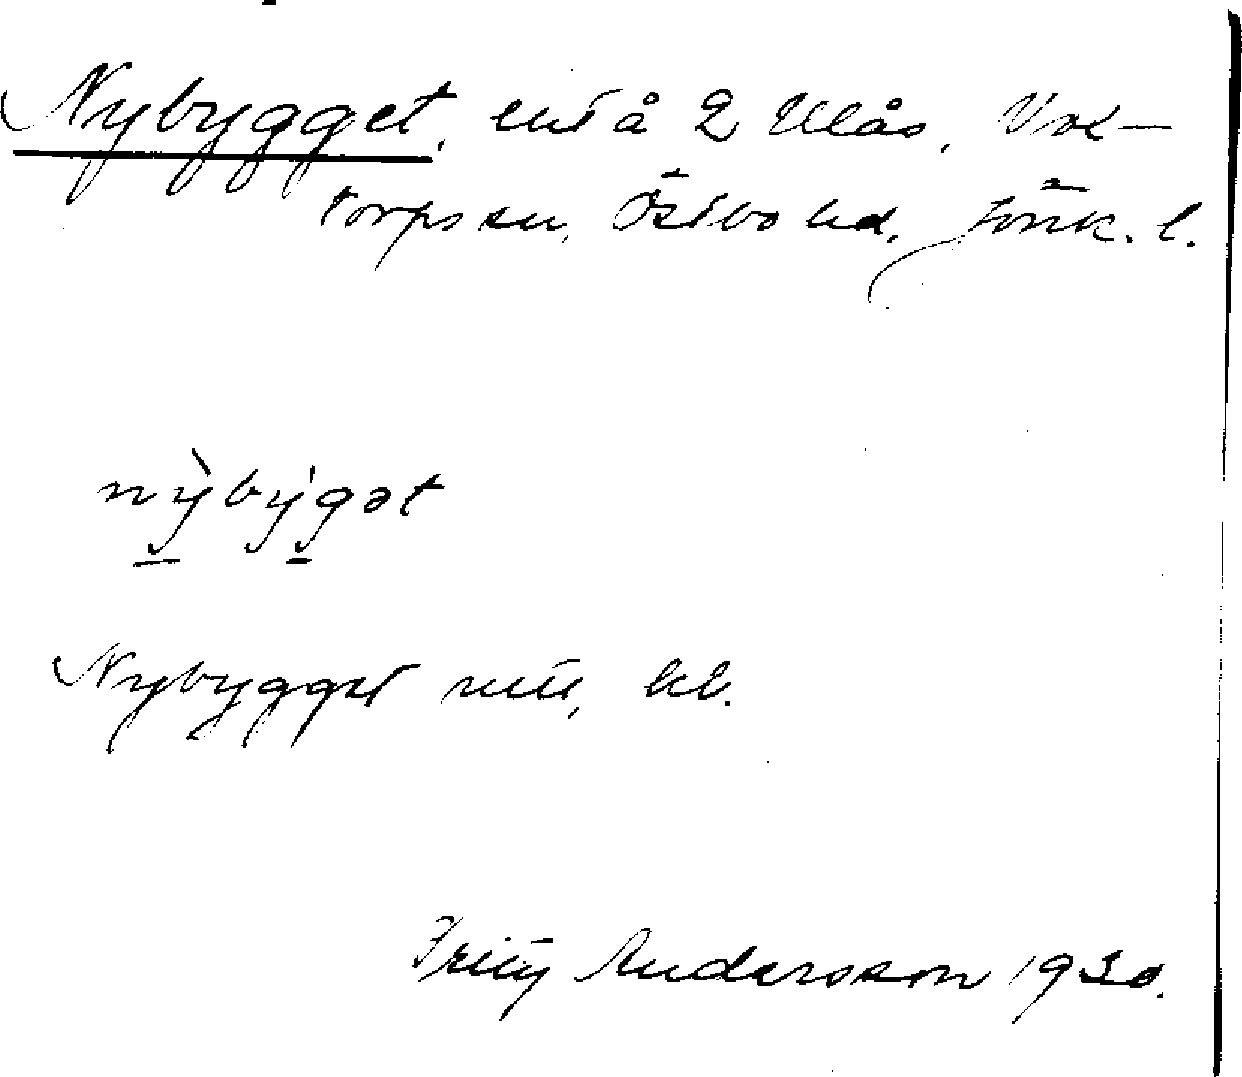 Nybygget, lht å 2 Ulås, Vok-
torps sn, Östbo hd, Jönk. l.
nỳbýgət
Nybygget mtl, kb.
Fritz Andersson 1930.